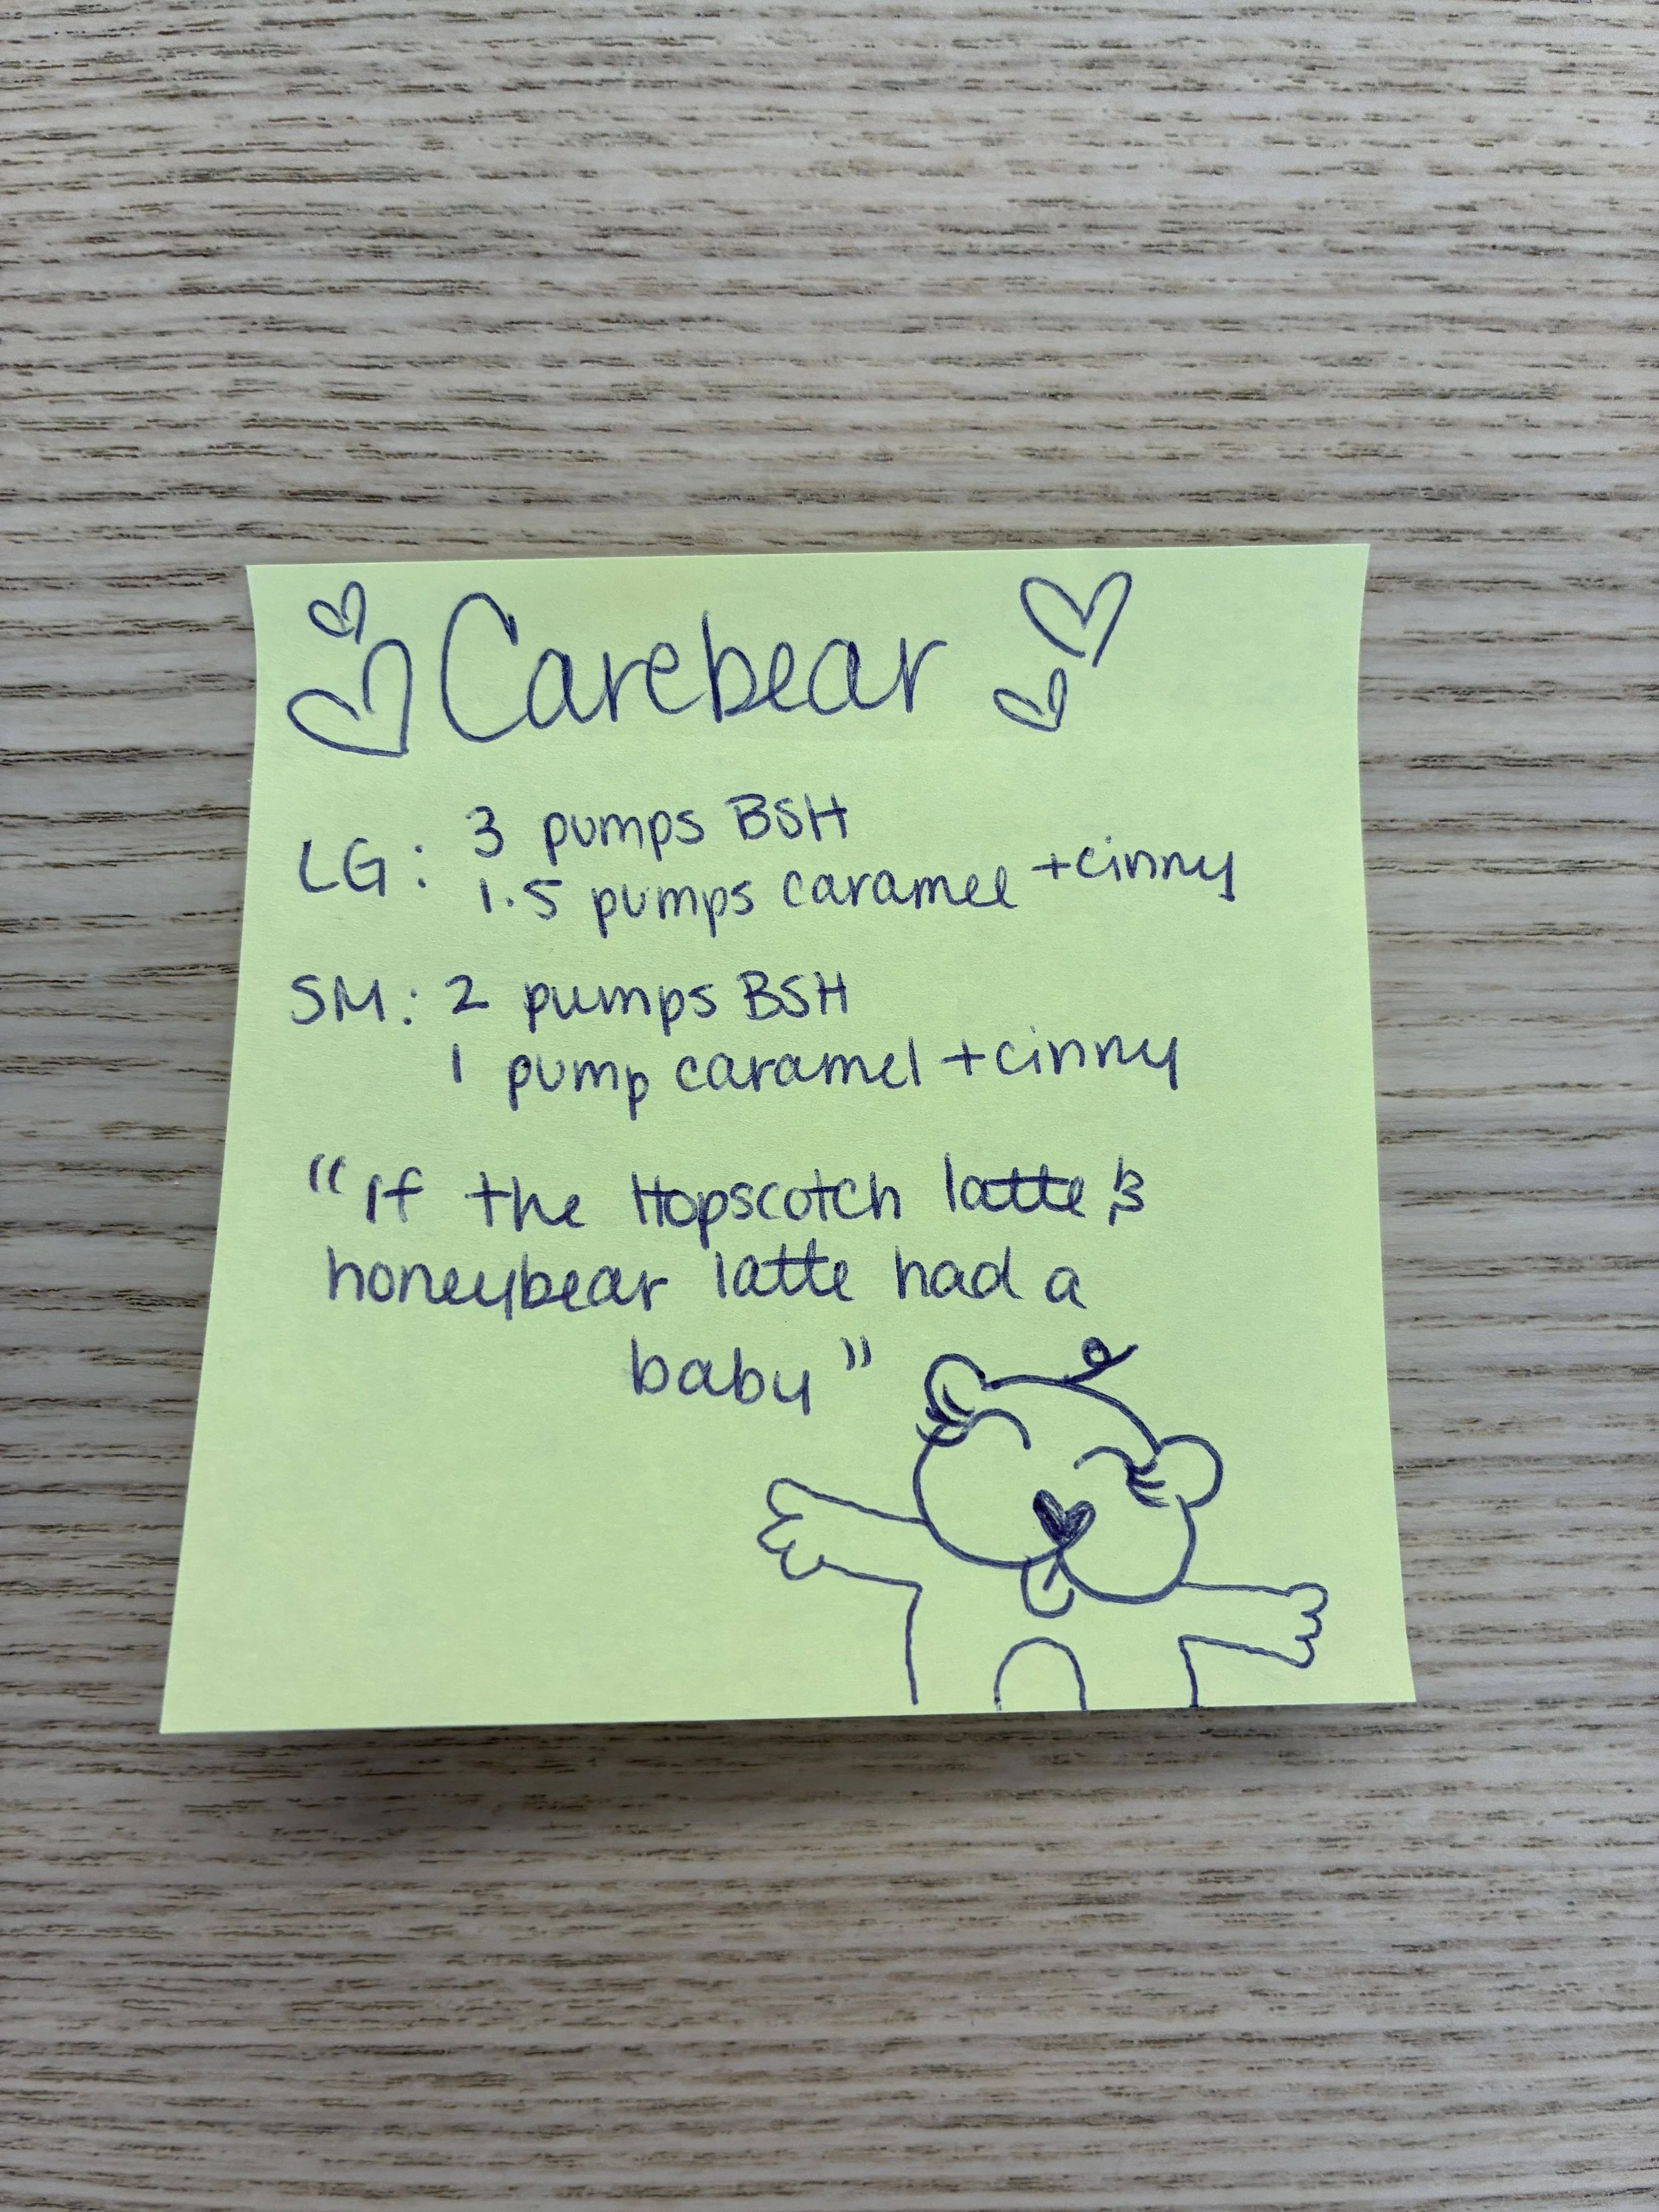 Carebear
LG: 3 pumps BSH
1.5 pumps caramel +cinny
SM: 2 pumps BSH
1 pump caramel +cinny
"If the Hopscotch latte &
honeybear latte had a
baby"